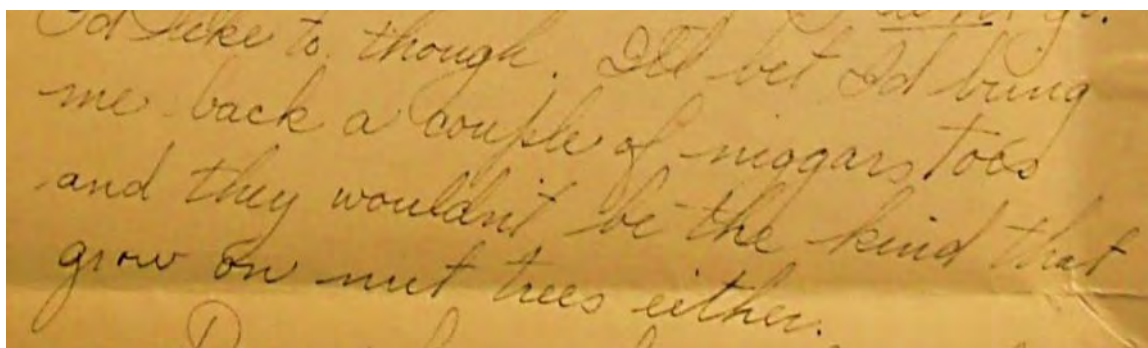 go.
I'd like to, though. I'll bet I'd bring
me back a couple of niggars toes
and they wouldn't be the kind that
grow on nut trees either.